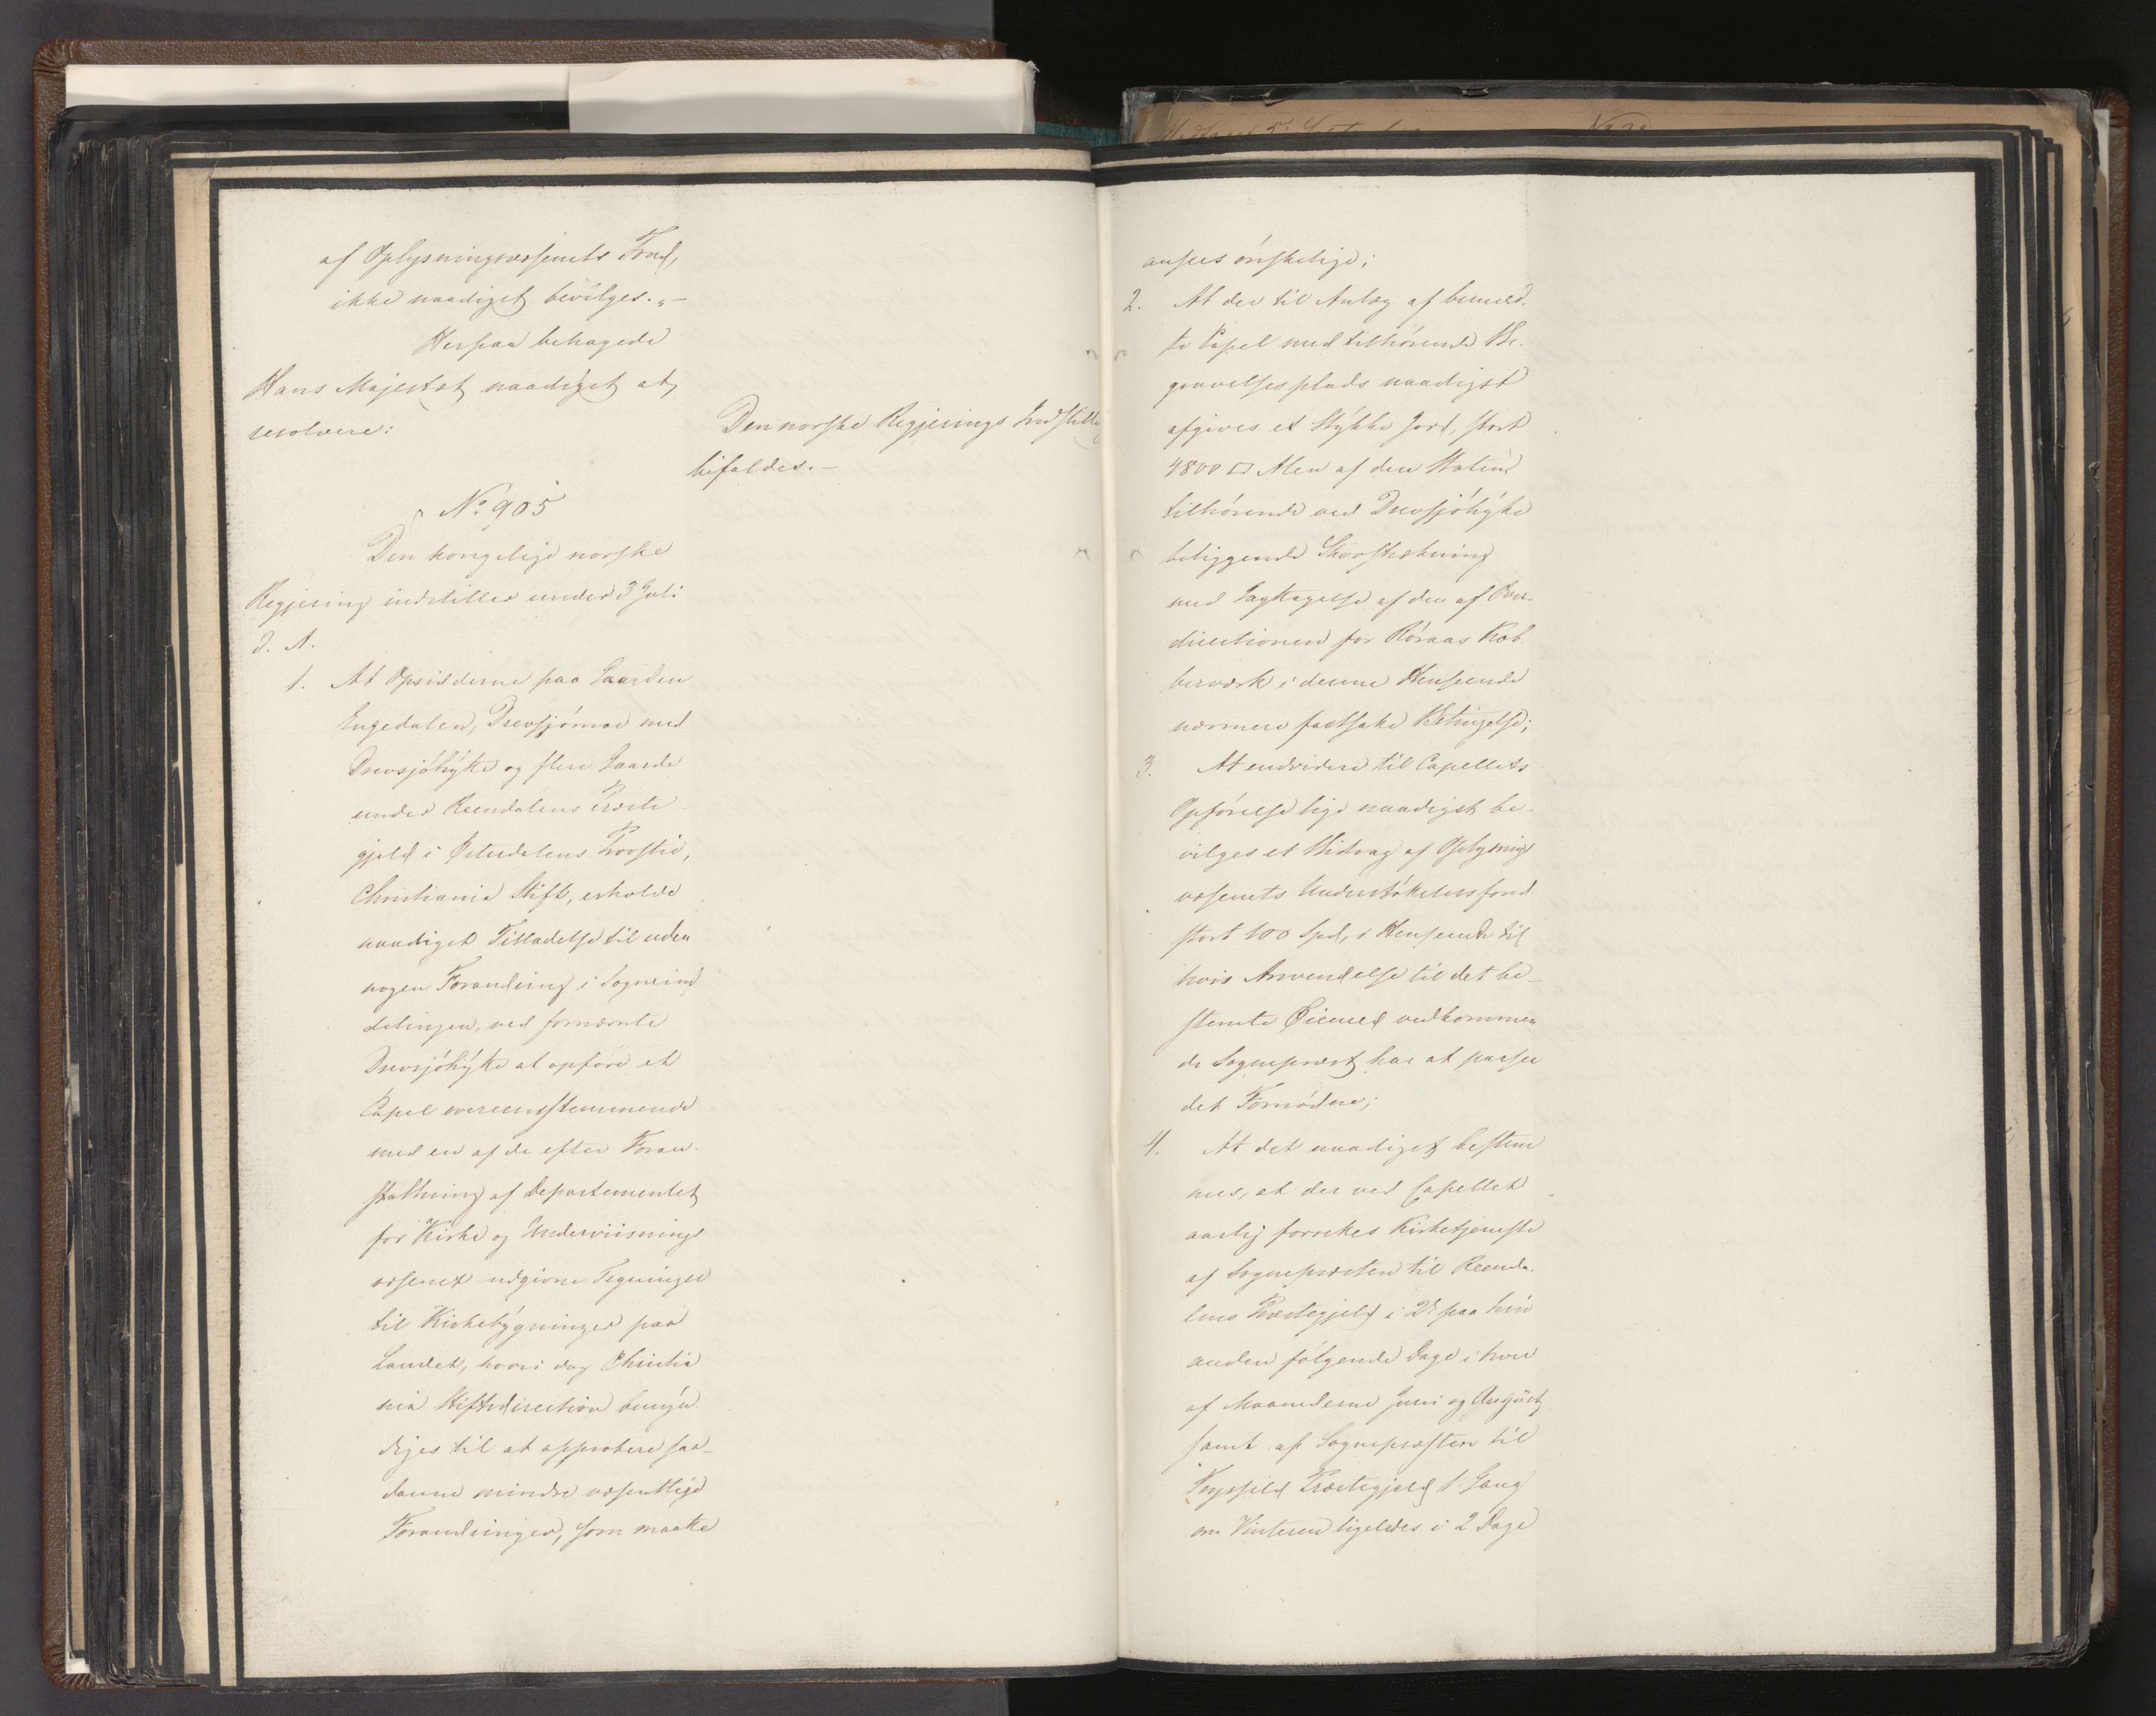 af Oplysningsvæsenets Fond,
ikke naadigst bevilges."-
Herpaa behagede
Hans Majestæt naadigst at
resolvere:
Den norske Regjerings Indstilling
bifaldes.-
No 905
Den kongelige norske
Regjering indstiller under 3 Juli
d. A.
1. At Opsidderne paa Gaarden
Engedalen, Drevsjömoe med
Drevsjöhÿtte og flere Gaarde
under Reendalens Præste
gjeld i Østerdalens Provstie,
Christiania Stift, erholde
naadigst Tilladelse til uden
nogen Forandring i Sogneind
delingen, ved fornævnte
Drevsjöhÿtte at opföre et
Capel overeensstemmende
med en af de efter Foran-
staltning af Departementet
for Kirke og Underviisnings
væsenet udgivne Tegninger
til Kirkebÿgninger paa
Landet, hvori dog Christia
nia Stiftsdirection bemÿn-
diges til at approbere saa-
danne mindre væsentlige
Forandringer, som maatte
ansees önskelige;
2. At der til Anlæg af benævn-
te Capel med tilhörende Be-
gravelsesplads naadigst
afgives et Stÿkke Jord, stort
4800 □ Alen af den Staten
tilhörende ved Drevsjöhÿtte
beliggende Skovstrækning
med Iagttagelse af den af Over-
directionen for Röraas Kob-
berværk i denne Henseende
nærmere fastsatte Betingelse;
3. At endvidere til Capellets
Opförelse lige naadigst be-
vilges et Bidrag af Oplysnings
væsenets Understöttelsesfond
stort 100 Spd, i Henseende til
hvis Anvendelse til det be-
stemte Øiemed vedkommen
de Sognepræst har at paasee
det Fornödne;
4. At det naadigst bestem
mes, at der ved Capellet
aarlig forrettes Kirketjeneste
af Sognepræsten til Reenda-
lens Præstegjeld i 2de paa hin
anden fölgende Dage i hver
af Maanederne Juni og August
samt af Sognepræsten til
Præstegjeld 1 Gang
om Vinteren ligeledes i 2 Dage